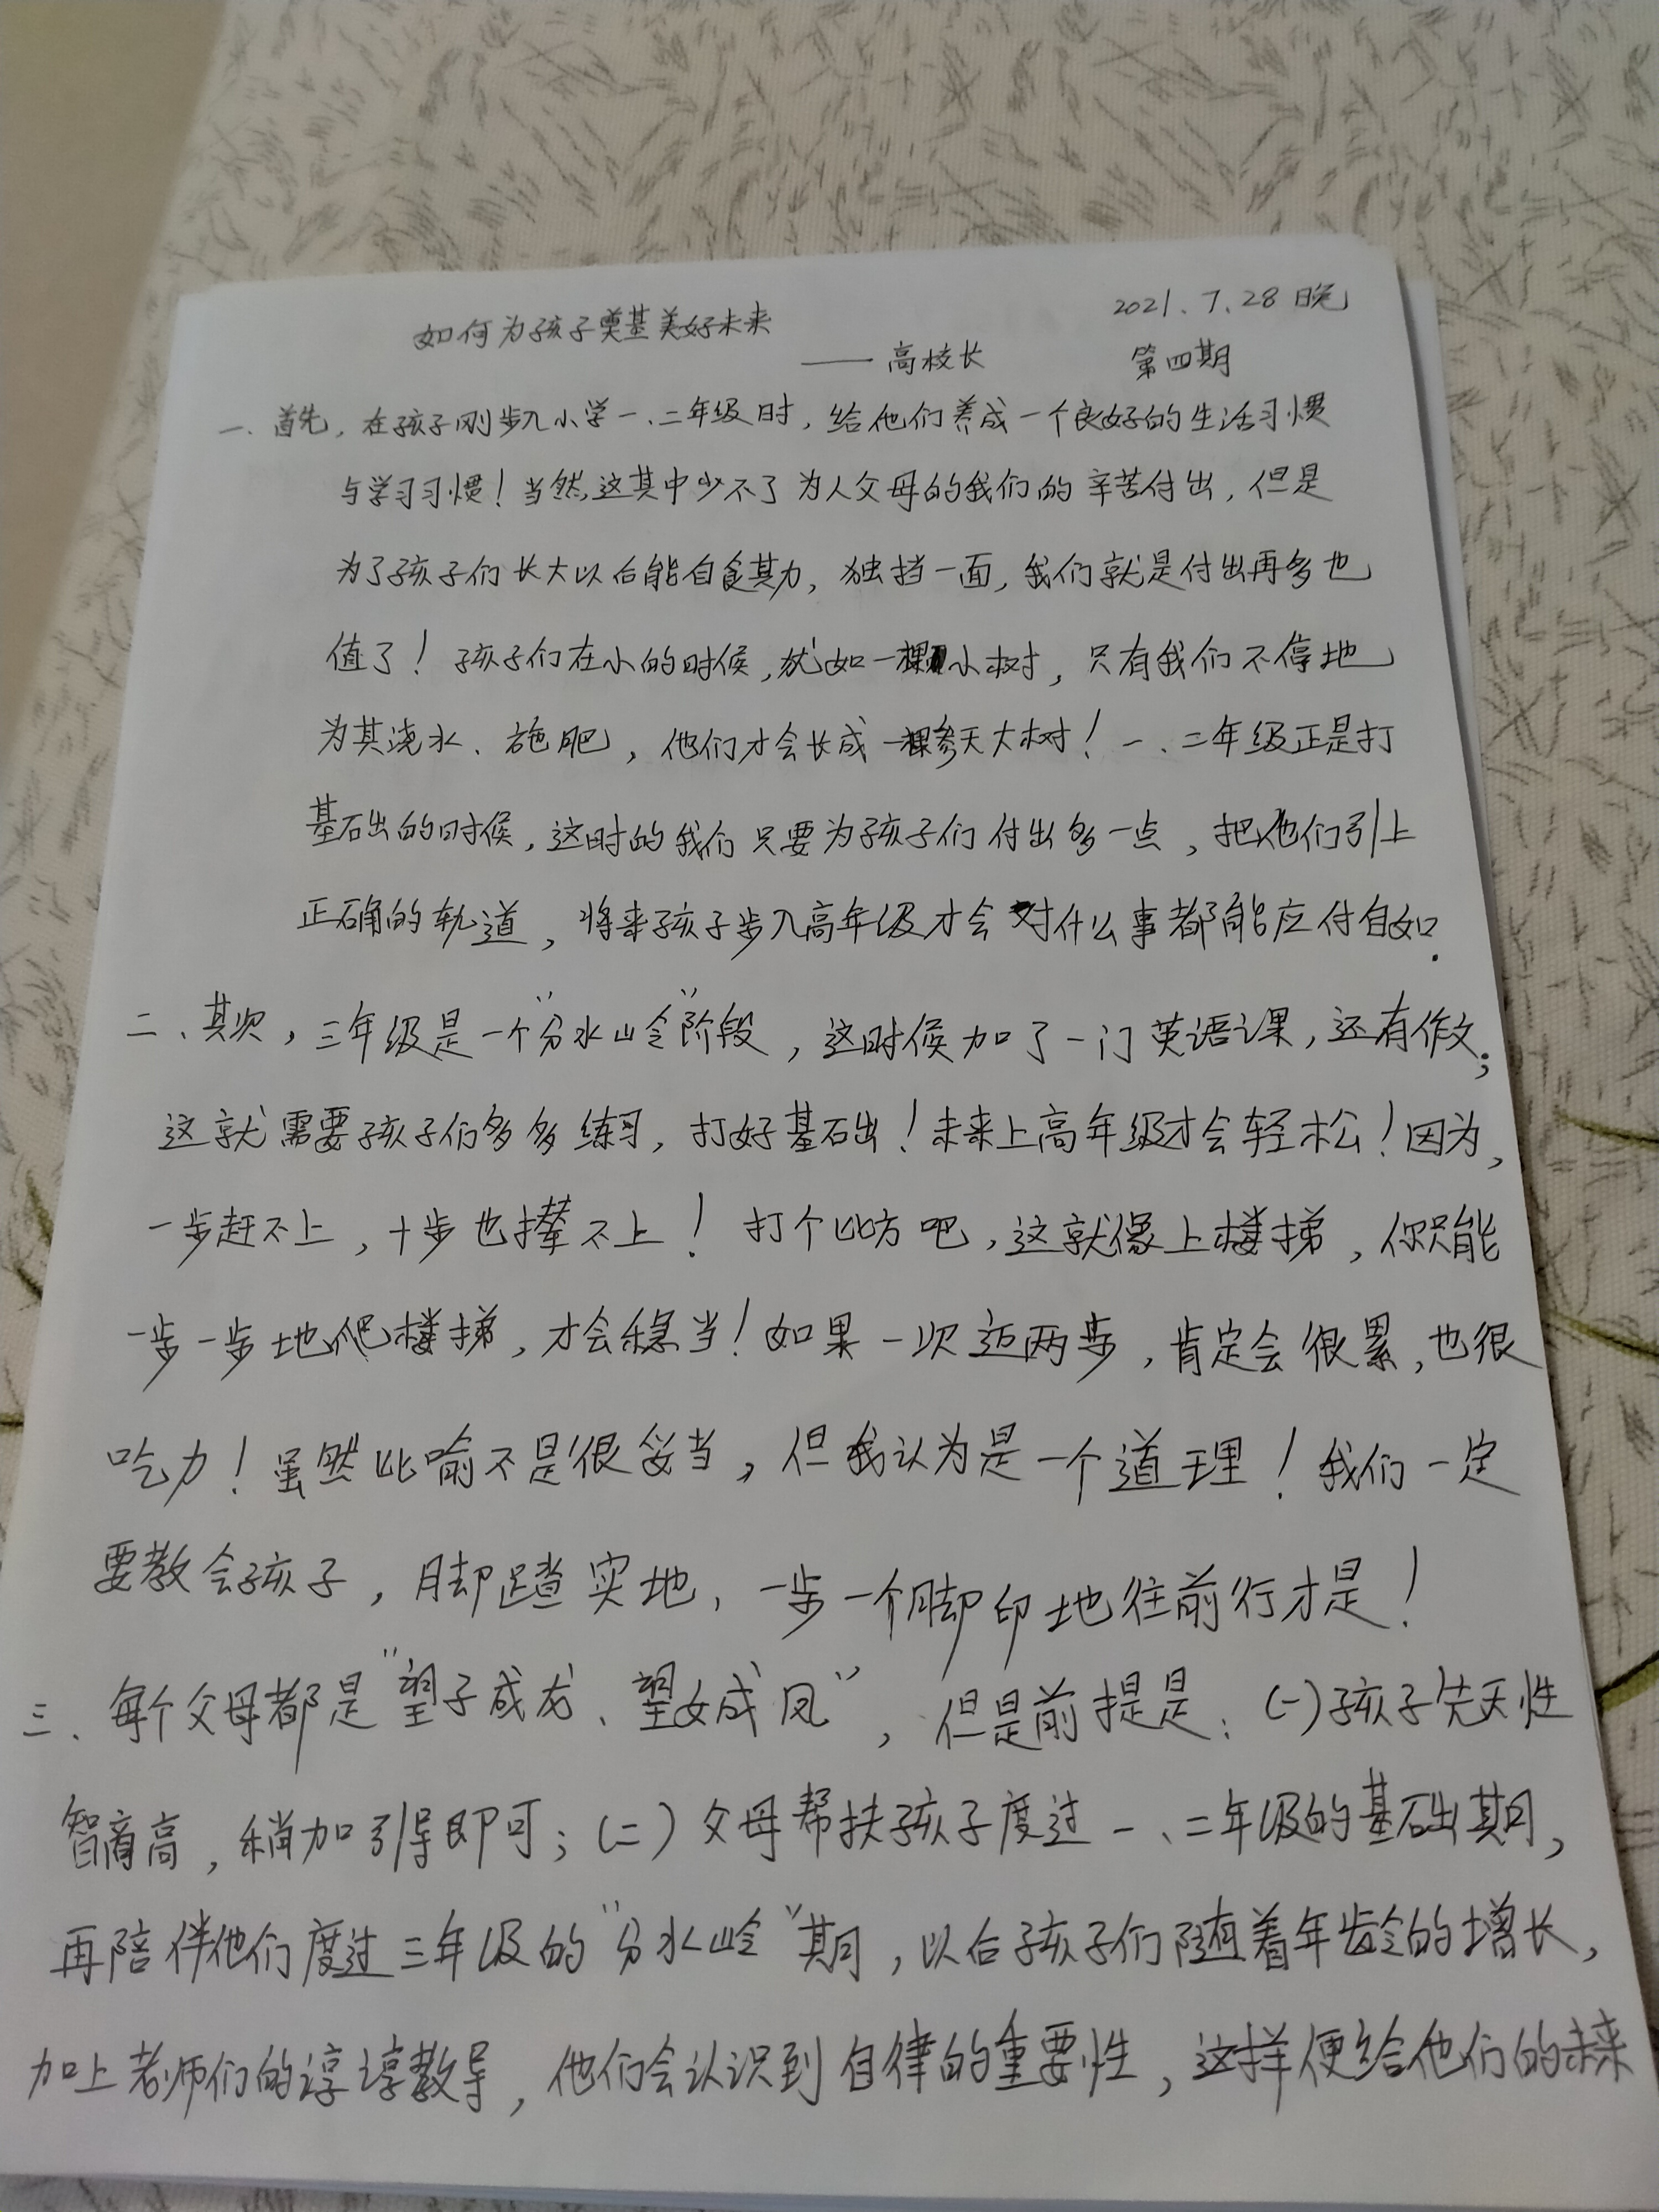 如何为孩子奠基美好未来
2021.7.28晚
——高校长
第四期
一、首先,在孩子刚步入小学一、二年级时,给他们养成一个良好的生活习惯
与学习习惯!当然,这其中少不了为人父母的我们的辛苦付出,但是
为了孩子们长大以后能自食其力,独挡一面,我们就是付出再多也
值了!孩子们在小的时候,犹如一棵小树,只有我们不停地
为其浇水、施肥,他们才会长成一棵参天大树!一、二年级正是打
基础的时候,这时的我们只要为孩子们付出多一点,把他们引上
正确的轨道,将来孩子步入高年级才会对什么事都能应付自如.
二、其次,三年级是一个“分水岭”阶段,这时候加了一门英语课,还有作文;
这就需要孩子们多多练习,打好基础!未来上高年级才会轻松!因为,
一步赶不上,十步也撵不上!打个比方吧,这就像上楼梯,你只能
一步一步地爬楼梯,才会稳当!如果一次迈两步,肯定会很累,也很
吃力!虽然比喻不是很妥当,但我认为是一个道理!我们一定
要教会孩子,脚踏实地,一步一个脚印地往前行才是!
三、每个父母都是“望子成龙、望女成凤”,但是前提是:(一)孩子先天性
智商高,稍加引导即可;(二)父母帮扶孩子度过一、二年级的基础期,
再陪伴他们度过三年级的“分水岭”期,以后孩子们随着年龄的增长,
加上老师们的谆谆教导,他们会认识到自律的重要性,这样便给他们的未来